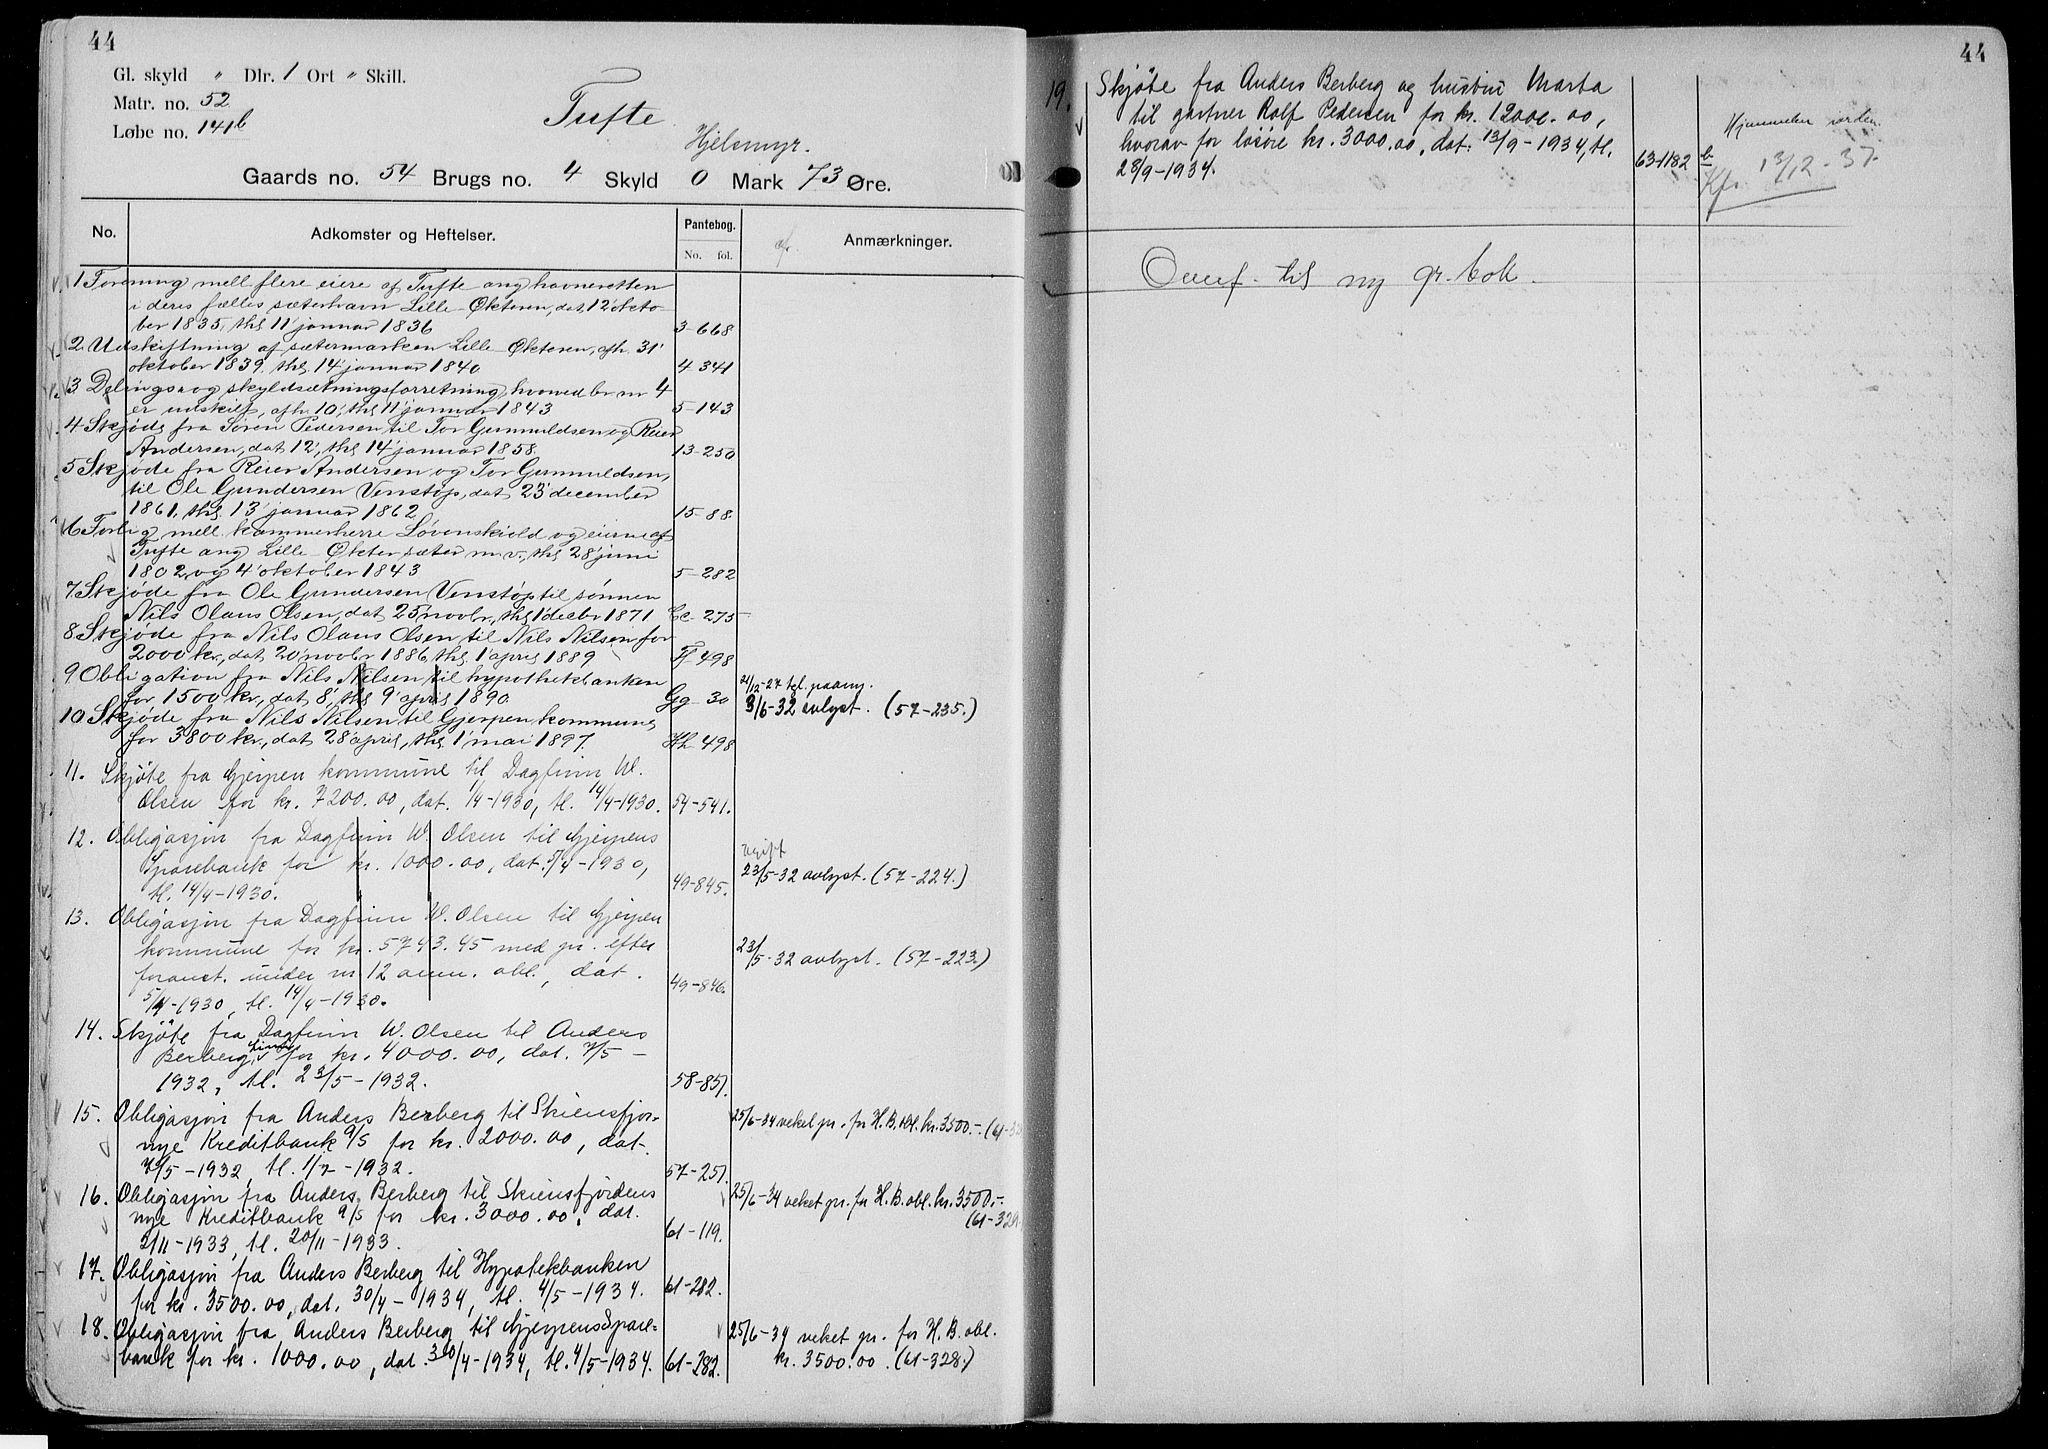 44
Gl. skyld " Dlr. 1 Ort " Skill.
Matr. no. 52
Løbe no. 141b
Tufte
Hjelsmyr.
Gaards no. 54 Brugs no. 4 Skyld 0 Mark 73 Øre.
No. Adkomster og Heftelser. Pantebog. No. fol. Anmærkninger.
1 Forening mell flere eiere af Tufte ang havneretten
i deres fælles sæterhavn Lille-Økteren, dat. 12' okto-
ber 1835, thl 11' januar 1836 3-668
2 Udskiftning af sætermarken Lille-Økteren, afh. 31'
oktober 1839, thl 14' januar 1840 4 341
3 Delings- og skyldsætningsforretning, hvorved br nr 4
er udskilt, afh. 10', thl 11' januar 1843 5-143
4 Skjøde fra Søren Pedersen til Tor Gunnuldsen og Reier
Andersen, dat 12', thl 14' januar 1858. 13-250
5 Skjøde fra Reier Andersen og Tor Gunnuldsen,
til Ole Gundersen Venstøp, dat 23' december
1861, thl 13' januar 1862 15-88
6 Forlig mell. kammerherre Løvenskiold og eierne af
Tufte ang Lille-Økter sæter m. v., thl 28' juni
1802 og 4' oktober 1843 5-282
7 Skjøde fra Ole Gundersen Venstøp til sønnen
Nils Olaus Olsen, dat 25' novbr, thl 1' decbr 1871 Cc-275
8 Skjøde fra Nils Olaus Olsen til Nils Nilsen for
2000 kr., dat 20' novbr 1886, thl 1' april 1889 Ff 498
9 Obligation fra Nils Nilsen til hypothekbanken
for 1500 kr, dat 8', thl 9' april 1890 Gg 30
21/12-27 tgl. paany.
3/6-32 avlyst. (57-235.)
10 Skjøde fra Nils Nilsen til Gjerpen kommune
for 3800 kr, dat 28' april, thl 1' mai 1897. Hh 498
11. Skjøte fra Gjerpen kommune til Dagfinn W.
Olsen for kr. 7200.00, dat. 1/4-1930, tl. 14/4-1930. 54-541.
12. Obligasjon fra Dagfinn W. Olsen til Gjerpens
Sparebank for kr. 1000.00, dat. 5/4-1930,
tl. 14/4-1930. 49-845.
23/5-32 avlyst. (57-224.)
13. Obligasjon fra Dagfinn W. Olsen til Gjerpen
kommune for kr. 5743.45 med pr. efter
foranst. under nr 12 anm. obl., dat.
5/4-1930, tl. 14/4-1930. 49-846.
23/5-32 avlyst. (57-223.)
14. Skjøte fra Dagfinn W. Olsen til Anders
Berberg for kr. 4000.00, dat. 7/5-
1932, tl. 23/5-1932. 58-851.
15. Obligasjon fra Anders Berberg til Skiensfjor-
nye Kreditbank A/S for kr. 2000.00, dat.
/5-1932, tl. 1/7-1932. 57-251.
25/6-34 veket pr. for H. B. obl. kr. 3500.-. (61-32
16. Obligasjon fra Anders Berberg til Skiensfjordens
nye Kreditbank A/S for kr. 3000.00, dat.
2/11-1933, tl. 20/11-1933. 61-119.
25/6-34 veket pr. for H. B. obl. kr. 3500.-.
(61-329.
17. Obligasjon fra Anders Berberg til Hypotekbanken
for kr. 3500.00, dat. 30/4-1934, tl. 4/5-1934. 61-282.
18. Obligasjon fra Anders Berberg til Gjerpens Spare-
bank for kr. 1000.00, dat. 30/4-1934, tl. 4/5-1934. 61-282.
25/6-34 veket pr. for H. B. obl.
kr. 3500.00. (61-328.)
44
19. Skjøte fra Anders Berberg og hustru Marta
til gartner Rolf Pedersen for kr. 12000.00,
hvorav for løsøre kr. 3000.00, dat. 13/9-1934, tl.
28/9-1934. 63-1182
Kfr. 13/12-37.
Overf. til ny gr. bok.